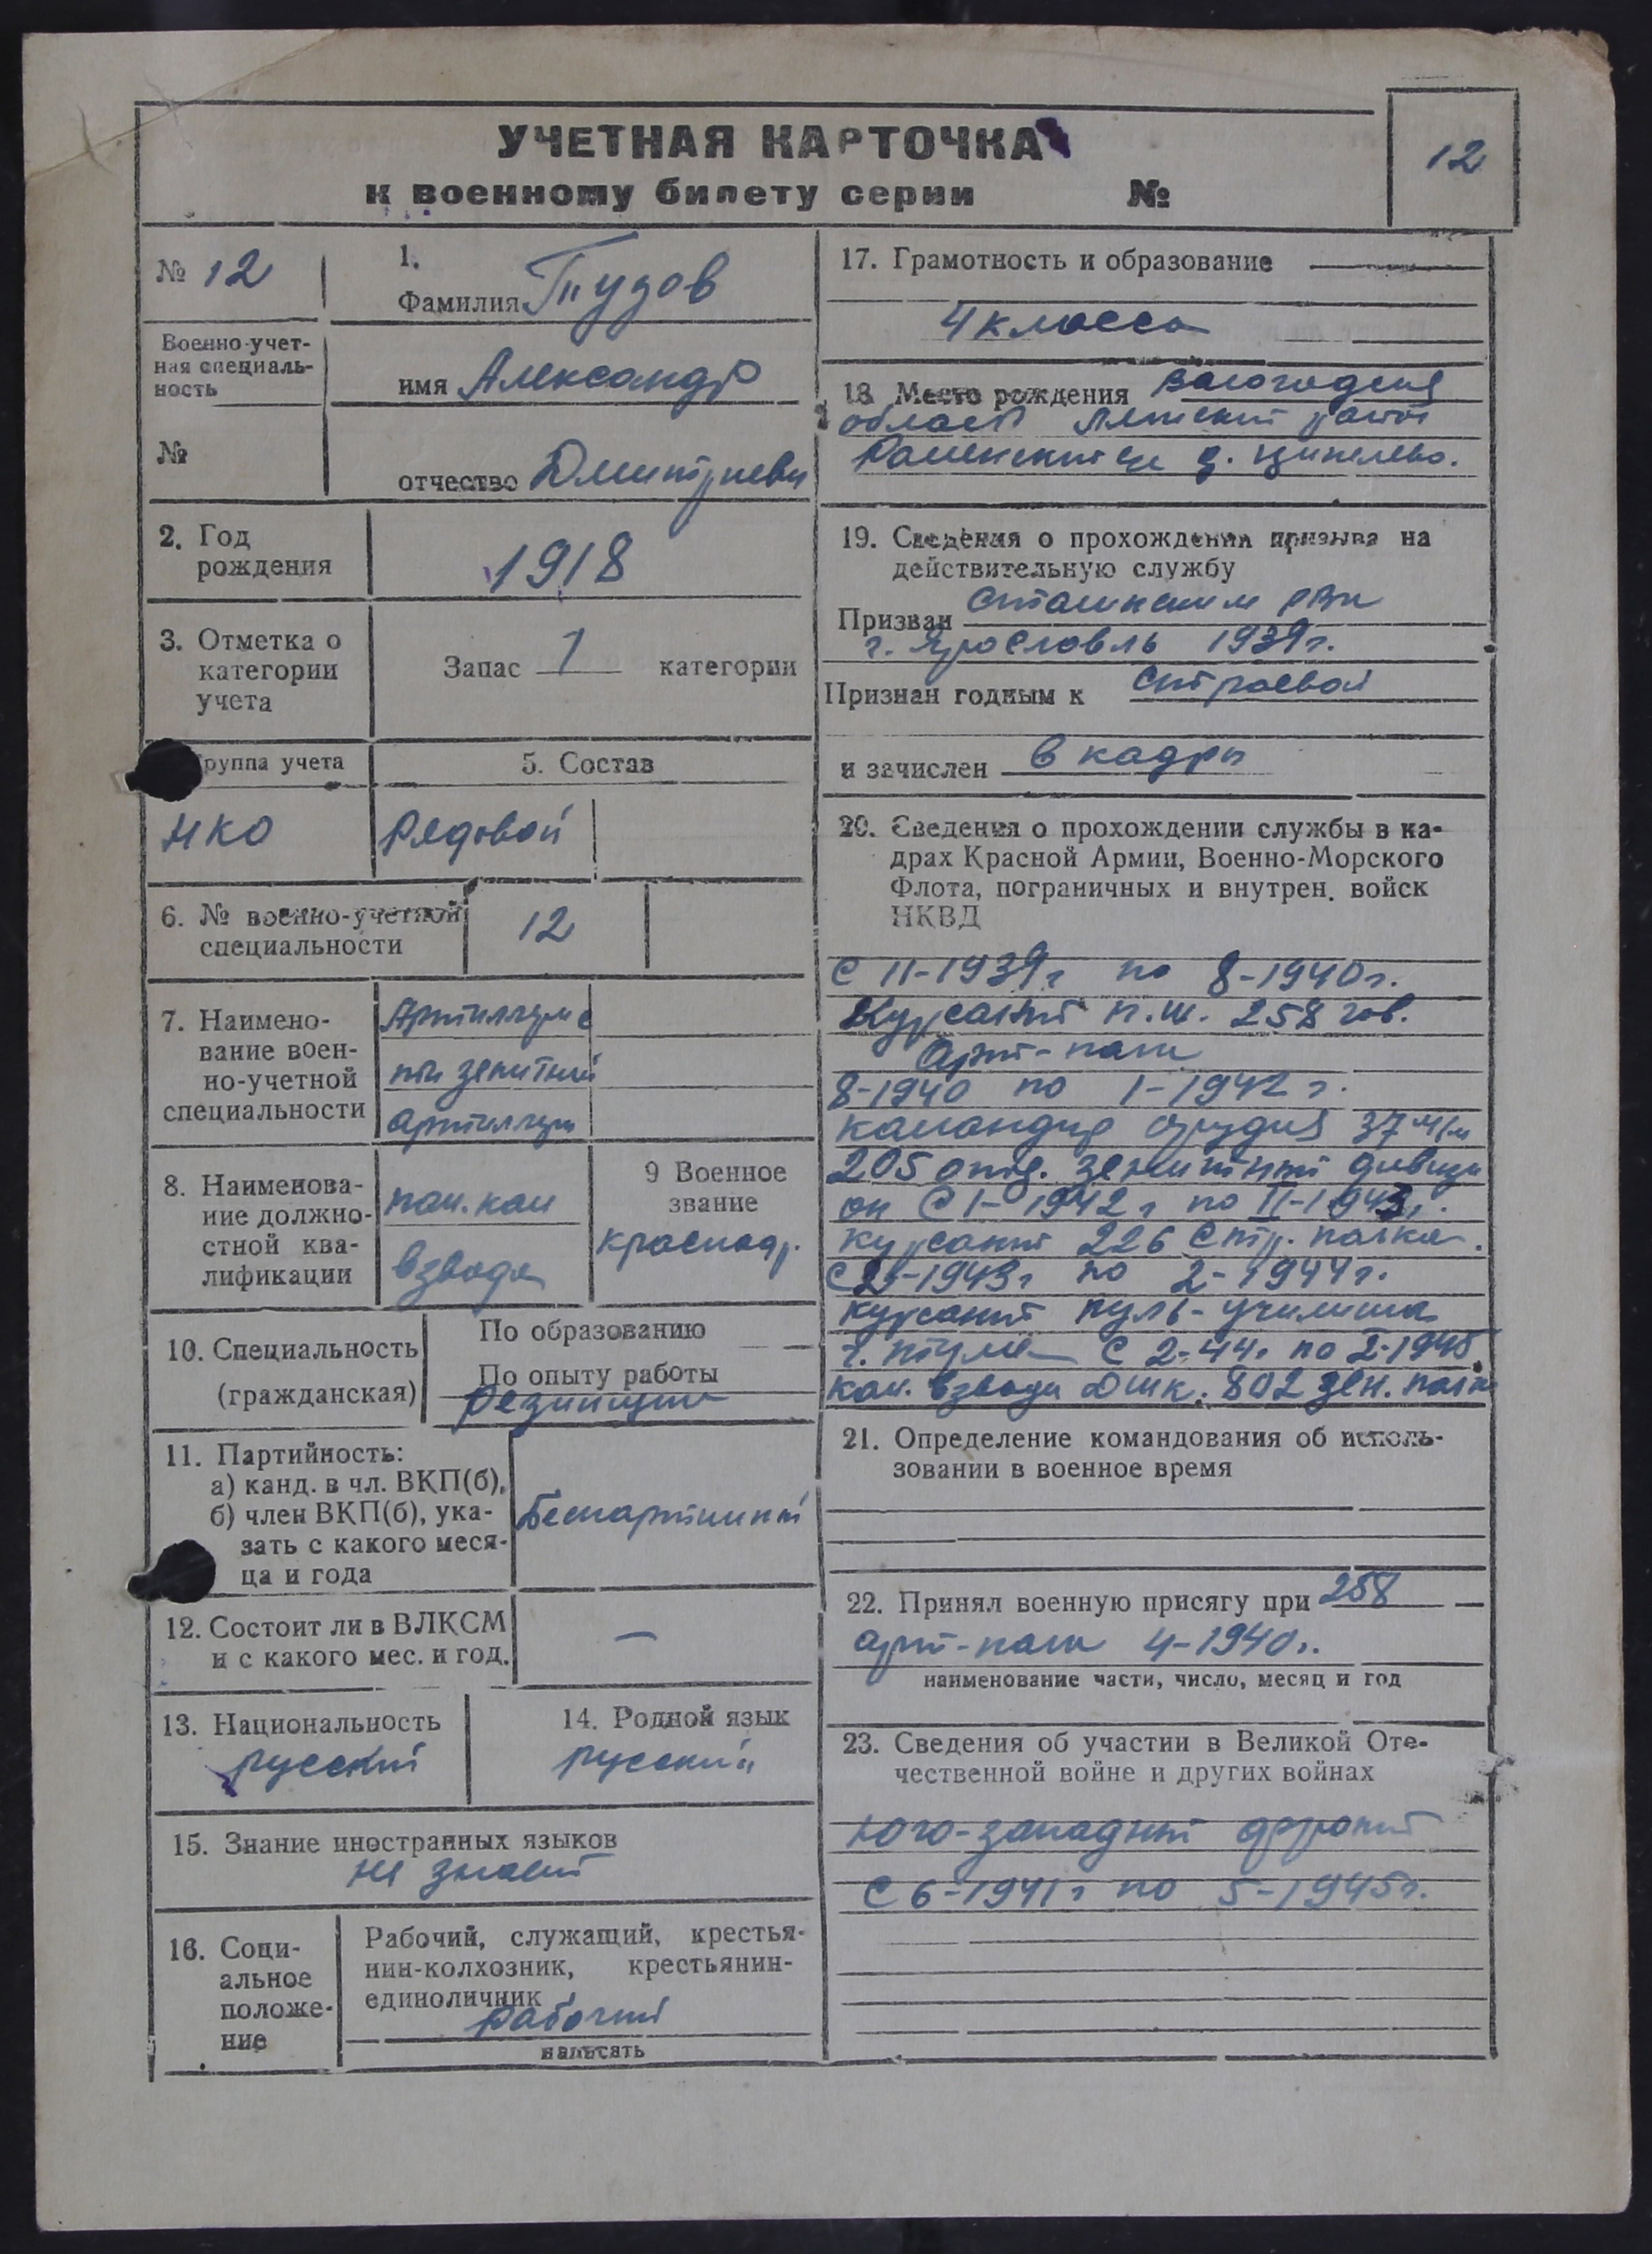 УЧЕТНАЯ КАРТОЧКА
к военному билету серии №
12
№ 12
1.
Фамилия Тузов
Военно-учет-
ная специаль-
ность
имя Александр
№
отчество Дмитриеви
2. Год
рождения
1918
3. Отметка о
категории
учета
Запас 1 категории
руппа учета
НКО
5. Состав
Рядовой
6. № военно-учетной
специальности
12
7. Наимено-
вание воен-
но-учетной
специальности
зенитной
8. Наименова-
ние должно-
стной ква-
лификации
пом. ком
взвода
9 Военное
звание
10. Специальность
(гражданская)
По образованию
По опыту работы
Резинщик
11. Партийность:
а) канд. в чл. ВКП(б),
б) член ВКП(б), ука-
зать с какого меся-
ца и года
Беспартийный
12. Состоит ли в ВЛКСМ
и с какого мес. и год.
—
13. Национальность
русский
14. Родной язык
русский
15. Знание иностранных языков
не знает
16. Соци-
альное
положе-
ние
Рабочий, служащий, крестья-
нин-колхозник, крестьянин-
единоличник
рабочий
написать
17. Грамотность и образование
4 класса
18. Место рождения Вологодская
область район
д.
19. Сведения о прохождении призыва на
действительную службу
Призван Сталинским РВК
г. Ярославль 1939г.
Признан годным к строевой
и зачислен в кадры
20. Сведения о прохождении службы в ка-
драх Красной Армии, Военно-Морского
Флота, пограничных и внутрен. войск
НКВД
С 11-1939г по 8-1940г.
Курсант п.ш. 258 гов.
арт-полк
8-1940 по 1-1942 г.
командир орудия 37 м/м
205 отд. зенитный дивизи
он С 1-1942 г по II-1943г.
курсант 226 стр. полка.
С 2-1943г по 2-1944г.
курсант пуль-училища
г. С 2-44г по 2-1945
ком. взвода ДШК. 802 зен. полк
21. Определение командования об исполь-
зовании в военное время
22. Принял военную присягу при 258
арт-полк 4-1940г.
наименование части, число, месяц и год
23. Сведения об участии в Великой Оте-
чественной войне и других войнах
Юго-западный фронт
С 6-1941 г по 5-1945г.